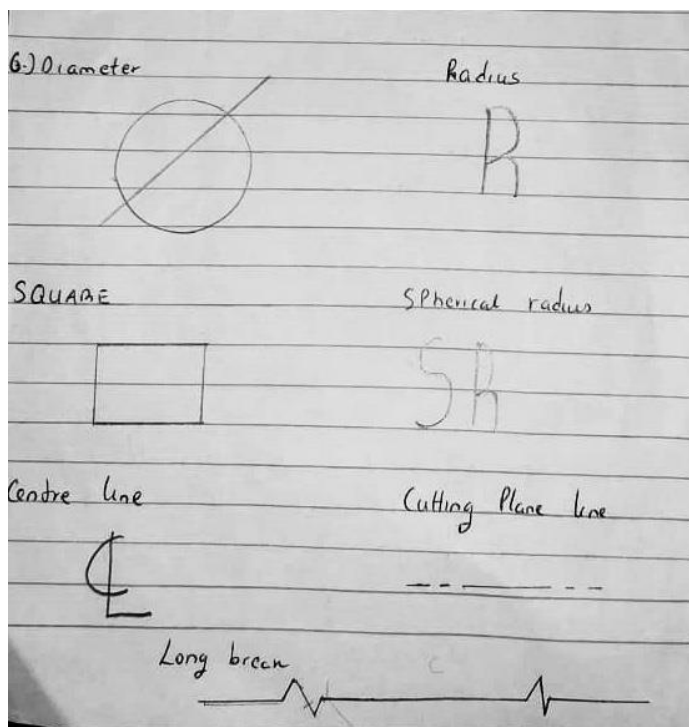 6.) Diameter
Radius
R
SQUARE
Spherical radius
SR
Centre line
CL
Cutting Plane line
Long break